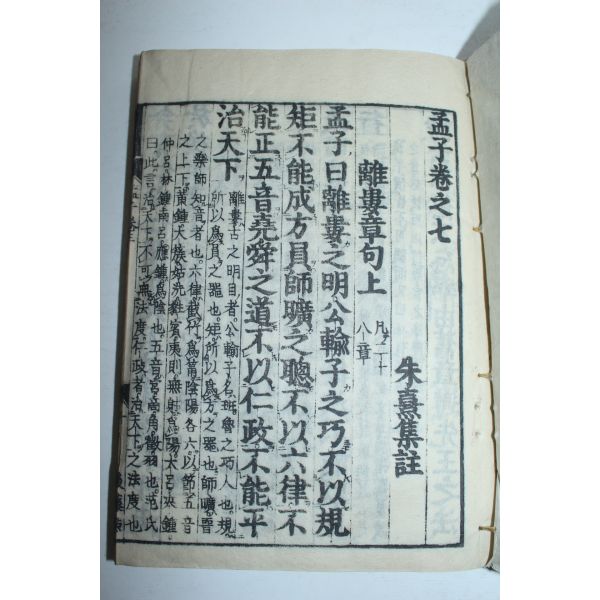 孟子卷之七
朱熹集註
離婁章句上
凡二十
八章
孟子曰離婁之明公輸子之巧不以規
矩不能成方員師曠之聰不以六律不
能正五音堯舜之道不以仁政不能平
治天下
離婁古之明目者公輸子名班魯之巧人也規
所以爲員之器也矩所以爲方之器也師曠晉
之樂師知音者也六律截竹爲筩陰陽各六以節五音
之上下黃鍾大蔟姑洗蕤賓夷則無射爲陽大呂夾鍾
仲呂林鍾南呂應鍾爲陰也五音宮商角徵羽也范氏
曰此言治天下不可無法度仁政者治天下之法度也